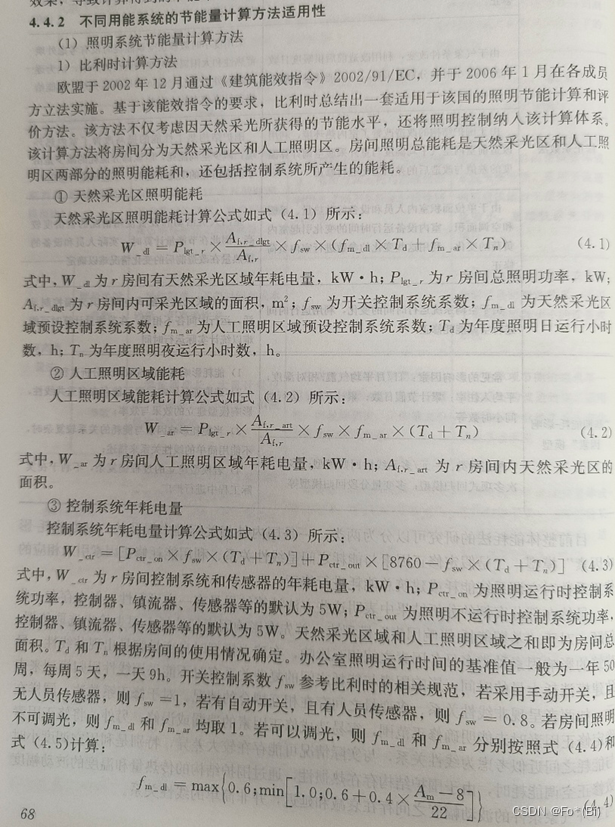 4.4.2 不同用能系统的节能量计算方法适用性
(1) 照明系统节能量计算方法
1) 比利时计算方法
欧盟于 2002 年 12 月通过《建筑能效指令》2002/91/EC，并于 2006 年 1 月在各成员
方立法实施。基于该能效指令的要求，比利时总结出一套适用于该国的照明节能计算和评
价方法。该方法不仅考虑因天然采光所获得的节能水平，还将照明控制纳入该计算体系。
该计算方法将房间分为天然采光区和人工照明区。房间照明总能耗是天然采光区和人工照
明区两部分的照明能耗和，还包括控制系统所产生的能耗。
① 天然采光区照明能耗
天然采光区照明能耗计算公式如式 (4.1) 所示：
W_dl = Plgt_r × Af,r_dlgt / Af,r × fsw × (fm_dl × Td + fm_ar × Tn) (4.1)
式中，W_dl 为 r 房间有天然采光区域年耗电量，kW·h；Plgt_r 为 r 房间总照明功率，kW；
Af,r_dlgt 为 r 房间内可采光区域的面积，m²；fsw 为开关控制系统系数；fm_dl 为天然采光区
域预设控制系统系数；fm_ar 为人工照明区域预设控制系统系数；Td 为年度照明日运行小时
数，h；Tn 为年度照明夜运行小时数，h。
② 人工照明区域能耗
人工照明区域能耗计算公式如式 (4.2) 所示：
W_ar = Plgt_r × Af,r_art / Af,r × fsw × fm_ar × (Td + Tn) (4.2)
式中，W_ar 为 r 房间人工照明区域年耗电量，kW·h；Af,r_art 为 r 房间内天然采光区的
面积。
③ 控制系统年耗电量
控制系统年耗电量计算公式如式 (4.3) 所示：
W_ctr = [Pctr_on × fsw × (Td + Tn)] + Pctr_out × [8760 − fsw × (Td + Tn)] (4.3)
式中，W_ctr 为 r 房间控制系统和传感器的年耗电量，kW·h；Pctr_on 为照明运行时控制系
统功率，控制器、镇流器、传感器等的默认为 5W；Pctr_out 为照明不运行时控制系统功率，
控制器、镇流器、传感器等的默认为 5W。天然采光区域和人工照明区域之和即为房间总
面积。Td 和 Tn 根据房间的使用情况确定。办公室照明运行时间的基准值一般为一年 50
周，每周 5 天，一天 9h。开关控制系数 fsw 参考比利时的相关规范，若采用手动开关，且
无人员传感器，则 fsw =1，若有自动开关，且有人员传感器，则 fsw = 0.8。若房间照明
不可调光，则 fm_dl 和 fm_ar 均取 1。若可以调光，则 fm_dl 和 fm_ar 分别按照式 (4.4) 和
式 (4.5) 计算：
fm_dl = max{0.6; min[1.0; 0.6 + 0.4 × Am − 8 / 22]} (4.4)
68
CSDN @Fo*(Bi)